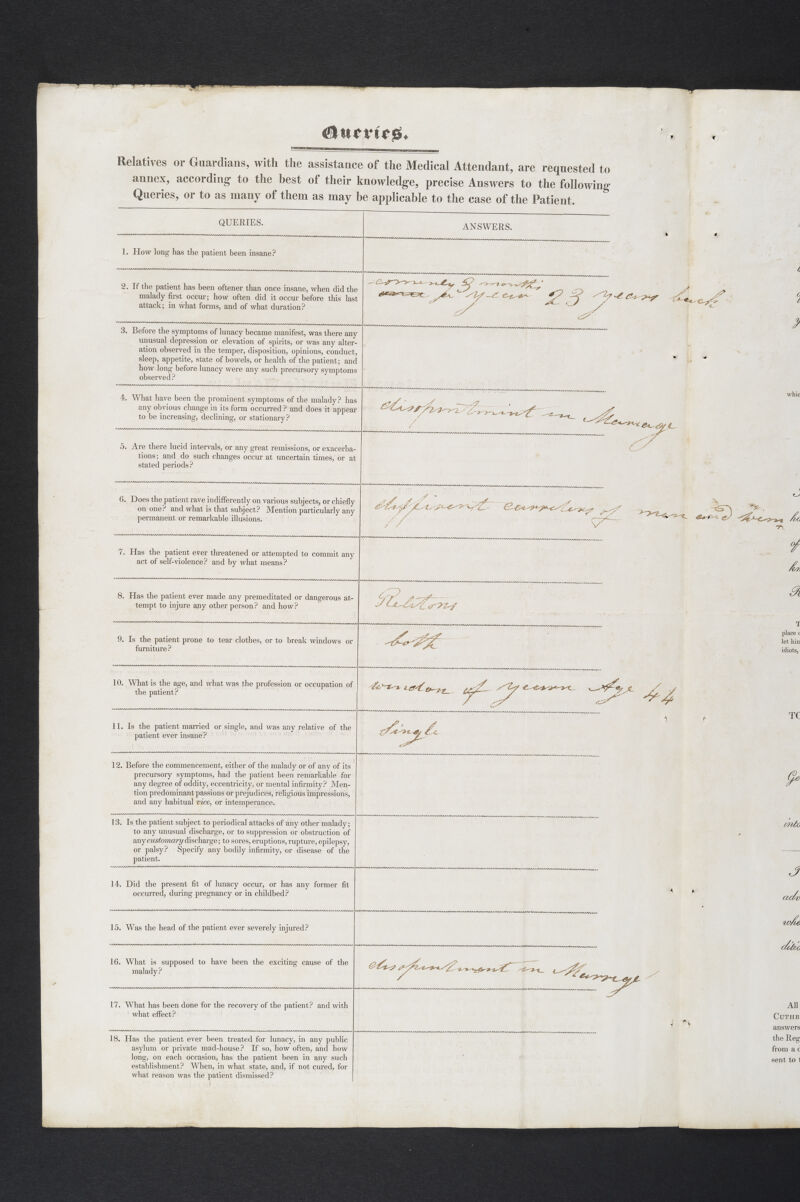 Queries.
Relatives or Guardians, with the assistance of the Medical Attendant, are requested to
annex, according to the best of their knowledge, precise Answers to the following
Queries, or to as many of them as may be applicable to the case of the Patient.
QUERIES.
ANSWERS.
1. How long has the patient been insane?
2. If the patient has been oftener than once insane, when did the
malady first occur; how often did it occur before this last
attack; in what forms, and of what duration?
comenley 3 months
year 23 years back
3. Before the symptoms of lunacy became manifest, was there any
unusual depression or elevation of spirits, or was any alter-
ation observed in the temper, disposition, opinions, conduct,
sleep, appetite, state of bowels, or health of the patient; and
how long before lunacy were any such precursory symptoms
observed?
4. What have been the prominent symptoms of the malady? has
any obvious change in its form occurred? and does it appear
to be increasing, declining, or stationary?
disopointmint in Marriage
5. Are there lucid intervals, or any great remissions, or exacerba-
tions; and do such changes occur at uncertain times, or at
stated periods?
6. Does the patient rave indifferently on various subjects, or chiefly
on one? and what is that subject? Mention particularly any
permanent or remarkable illusions.
of men and
7. Has the patient ever threatened or attempted to commit any
act of self-violence? and by what means?
8. Has the patient ever made any premeditated or dangerous at-
tempt to injure any other person? and how?
9. Is the patient prone to tear clothes, or to break windows or
furniture?
both
10. What is the age, and what was the profession or occupation of
the patient?
of Age 44
11. Is the patient married or single, and was any relative of the
patient ever insane?
Single
12. Before the commencement, either of the malady or of any of its
precursory symptoms, had the patient been remarkable for
any degree of oddity, eccentricity, or mental infirmity? Men-
tion predominant passions or prejudices, religious impressions,
and any habitual vice, or intemperance.
13. Is the patient subject to periodical attacks of any other malady;
to any unusual discharge, or to suppression or obstruction of
any customary discharge; to sores, eruptions, rupture, epilepsy,
or palsy? Specify any bodily infirmity, or disease of the
patient.
14. Did the present fit of lunacy occur, or has any former fit
occurred, during pregnancy or in childbed?
15. Was the head of the patient ever severely injured?
16. What is supposed to have been the exciting cause of the
malady?
disopointment in Marrege
17. What has been done for the recovery of the patient? and with
what effect?
18. Has the patient ever been treated for lunacy, in any public
asylum or private mad-house? If so, how often, and how
long, on each occasion, has the patient been in any such
establishment? When, in what state, and, if not cured, for
what reason was the patient dismissed?
whic
of
place
let him
idiots,
TC
into
adv
whe
All
CUTHB
answers
the Reg
from a
sent to